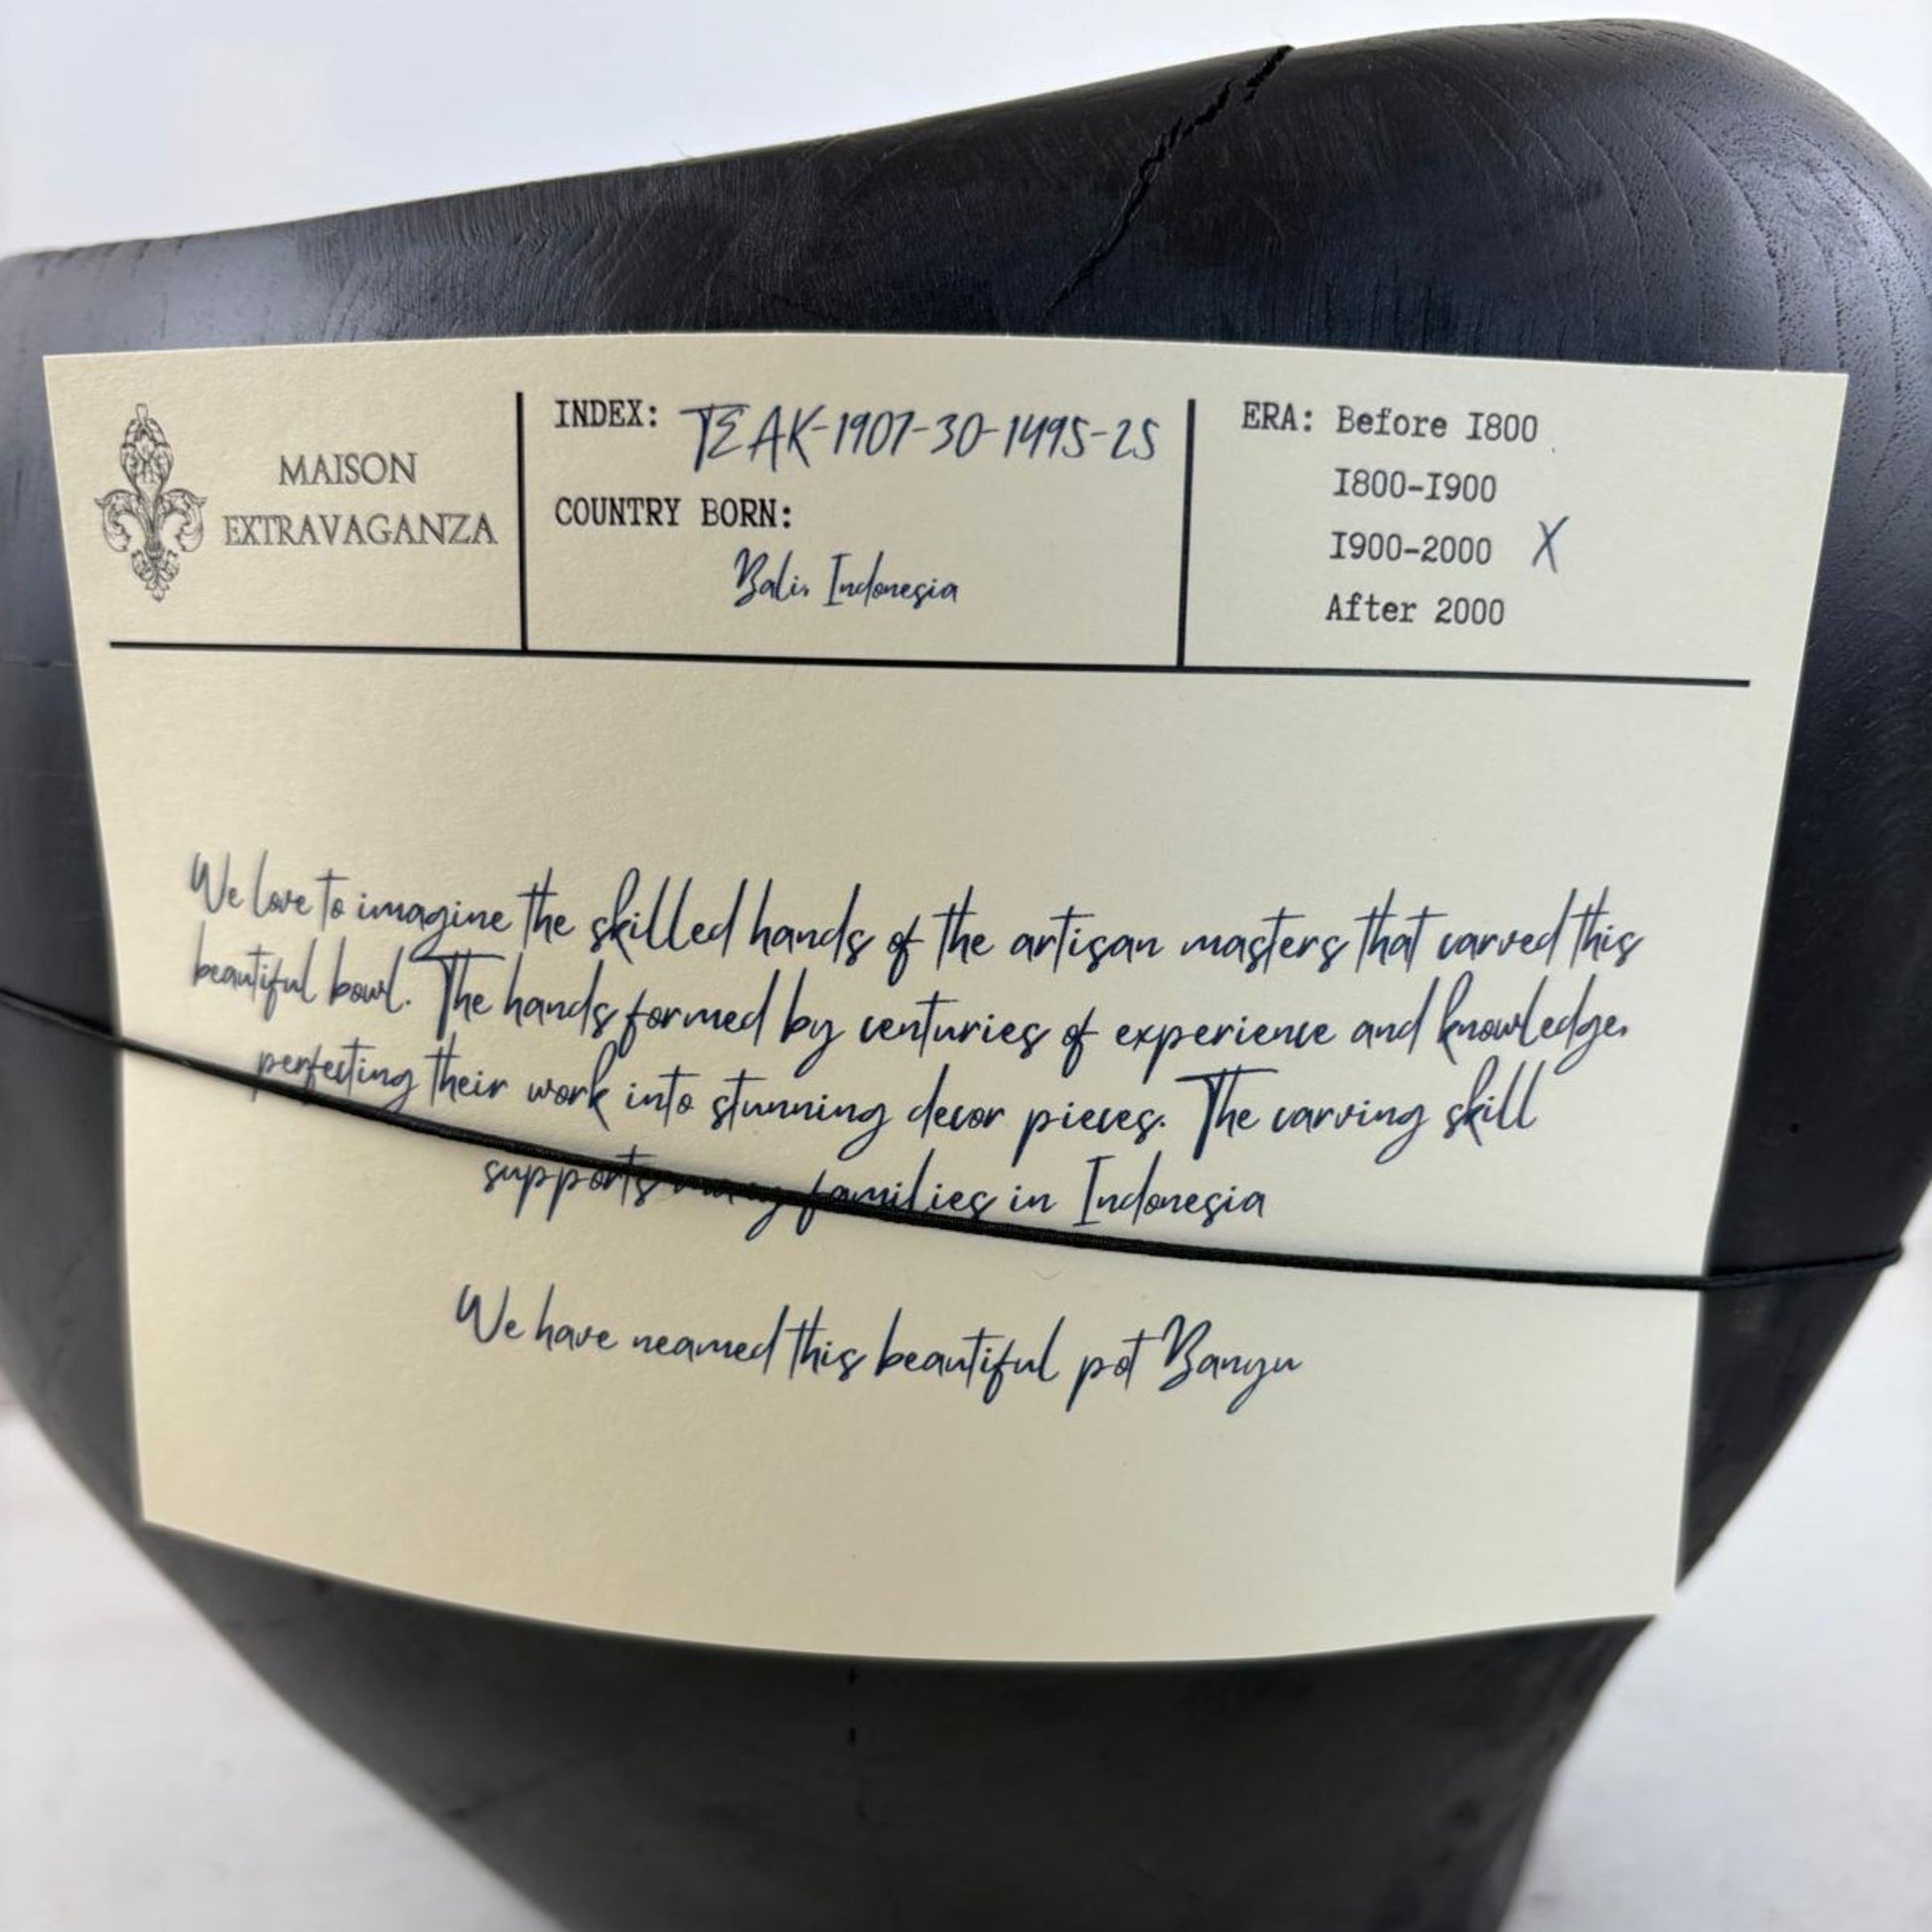 MAISON
EXTRAVAGANZA
INDEX: TEAK-1907-30-1495-25
COUNTRY BORN:
Bali, Indonesia
ERA: Before I800
I800-I900
I900-2000 X
After 2000
We love to imagine the skilled hands of the artisan masters that carved this
beautiful bowl. The hands formed by centuries of experience and knowledge,
perfecting their work into stunning decor pieces. The carving skill
supports many families in Indonesia
We have neamed this beautiful pot Banyu